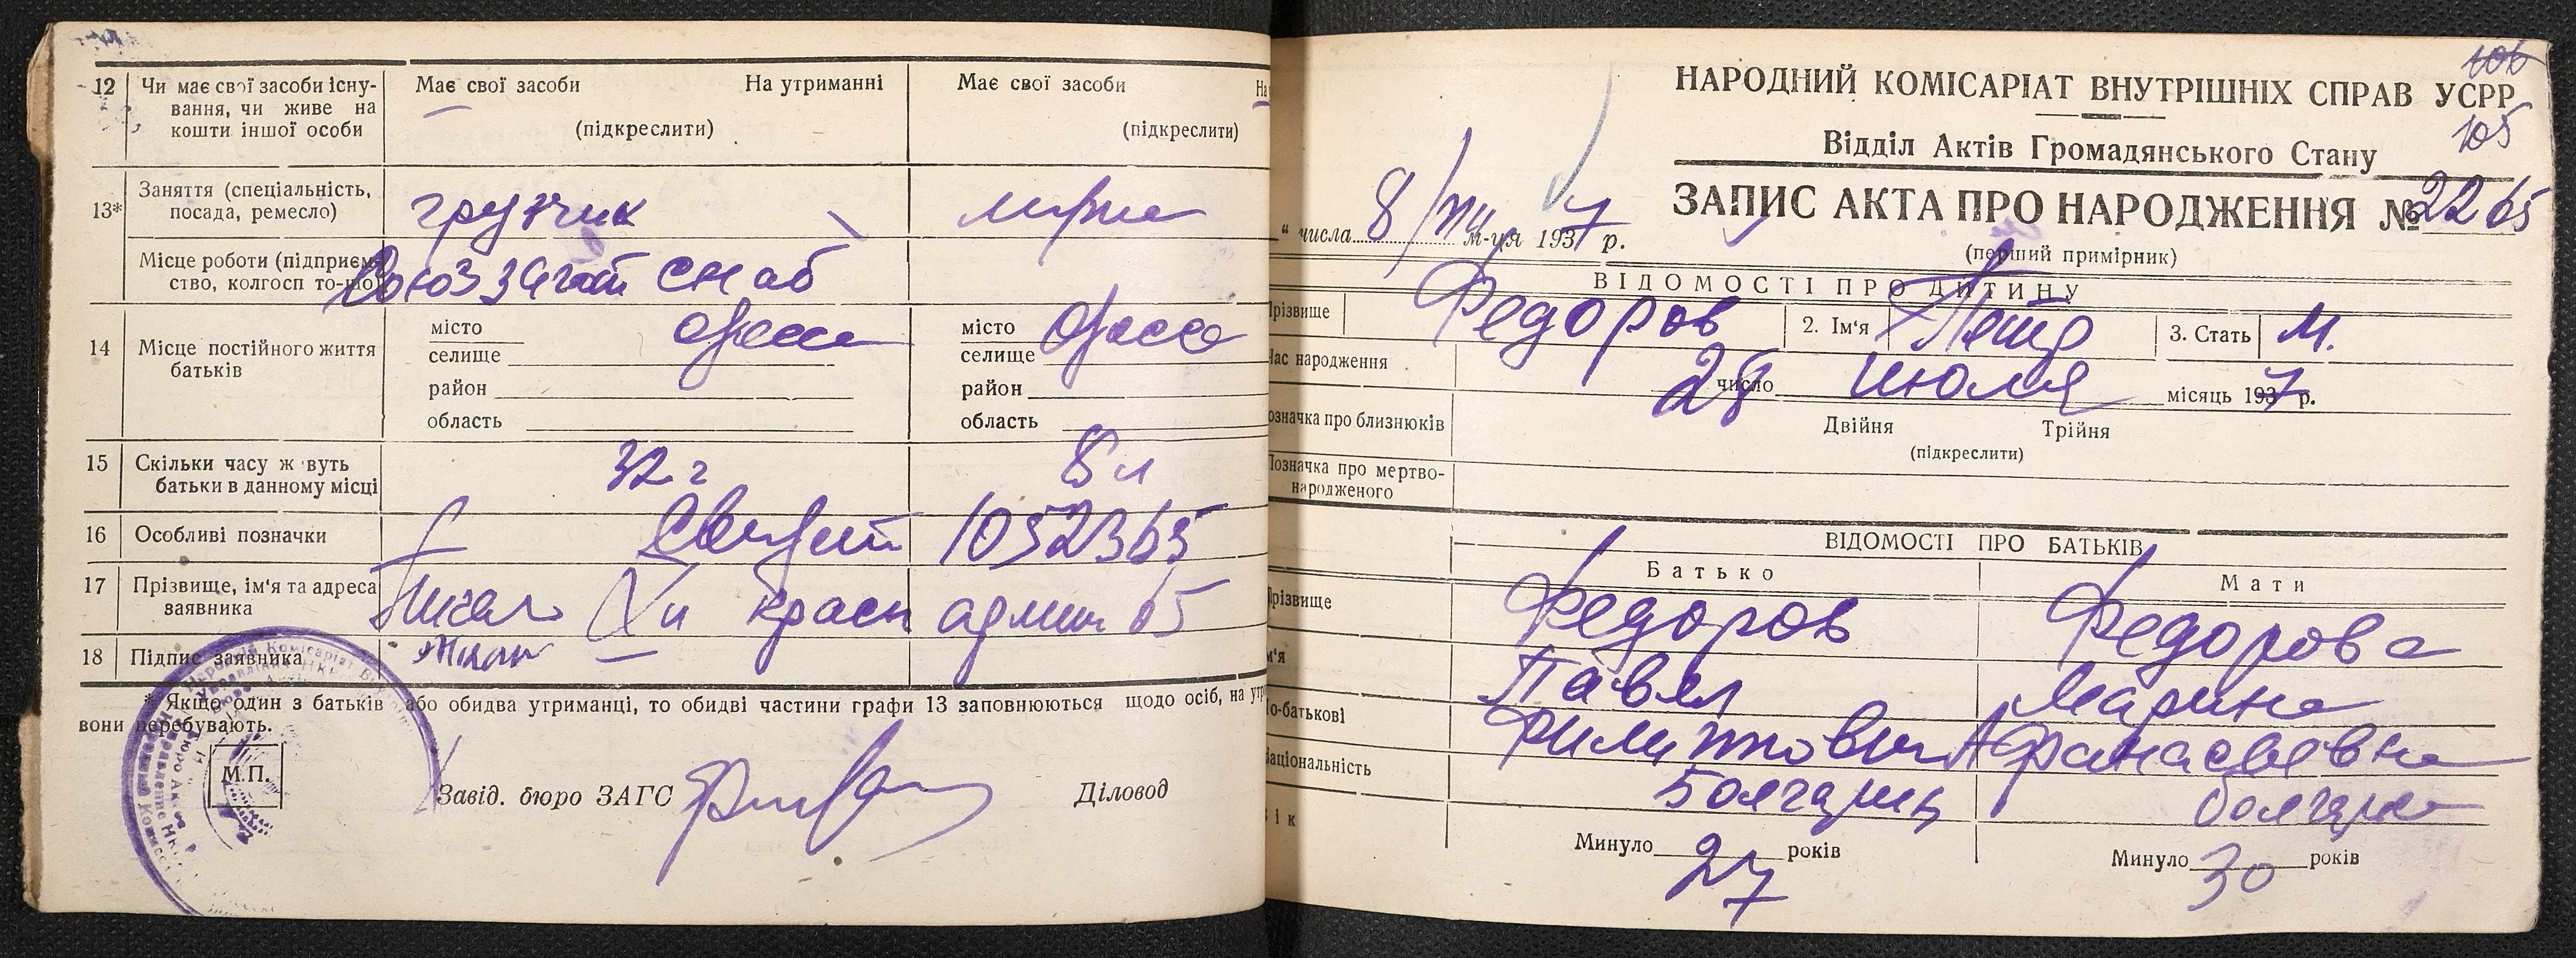 12 Чи має свої засоби існу-
вання, чи живе на
кошти іншої особи
Має свої засоби На утриманні
(підкреслити)
Має свої засоби На
(підкреслити)
13* Заняття (спеціальність,
посада, ремесло)
грузчик
Місце роботи (підприєм-
ство, колгосп то-що)
Союз снаб
14 Місце постійного життя
батьків
місто Одесса
селище
район
область
місто Одесса
селище
район
область
15 Скільки часу живуть
батьки в данному місці
32 г
8 л
16 Особливі позначки
1052365
17 Прізвище, ім'я та адреса
заявника
красн 65
18 Підпис заявника
* Якщо один з батьків або обидва утриманці, то обидві частини графи 13 заповнюються щодо осіб, на утр
вони перебувають.
М.П.
Завід. бюро ЗАГС
Діловод
106
105
НАРОДНИЙ КОМІСАРІАТ ВНУТРІШНІХ СПРАВ УСРР
Відділ Актів Громадянського Стану
ЗАПИС АКТА ПРО НАРОДЖЕННЯ № 2265
(перший примірник)
" числа 8/VIII м-ця 1937 р.
ВІДОМОСТІ ПРО ДИТИНУ
різвище Федоров 2. Ім'я Петр 3. Стать М.
Час народження
28 число июля місяць 1937 р.
означка про близнюків
Двійня Трійня
(підкреслити)
Позначка про мертво-
народженого
ВІДОМОСТІ ПРО БАТЬКІВ
Батько Мати
Прізвище Федоров Федорова
м'я Павел Марина
о-батькові Филиппович Афанасьевна
аціональність Болгарин болгарка
ік
Минуло 27 років
Минуло 30 років